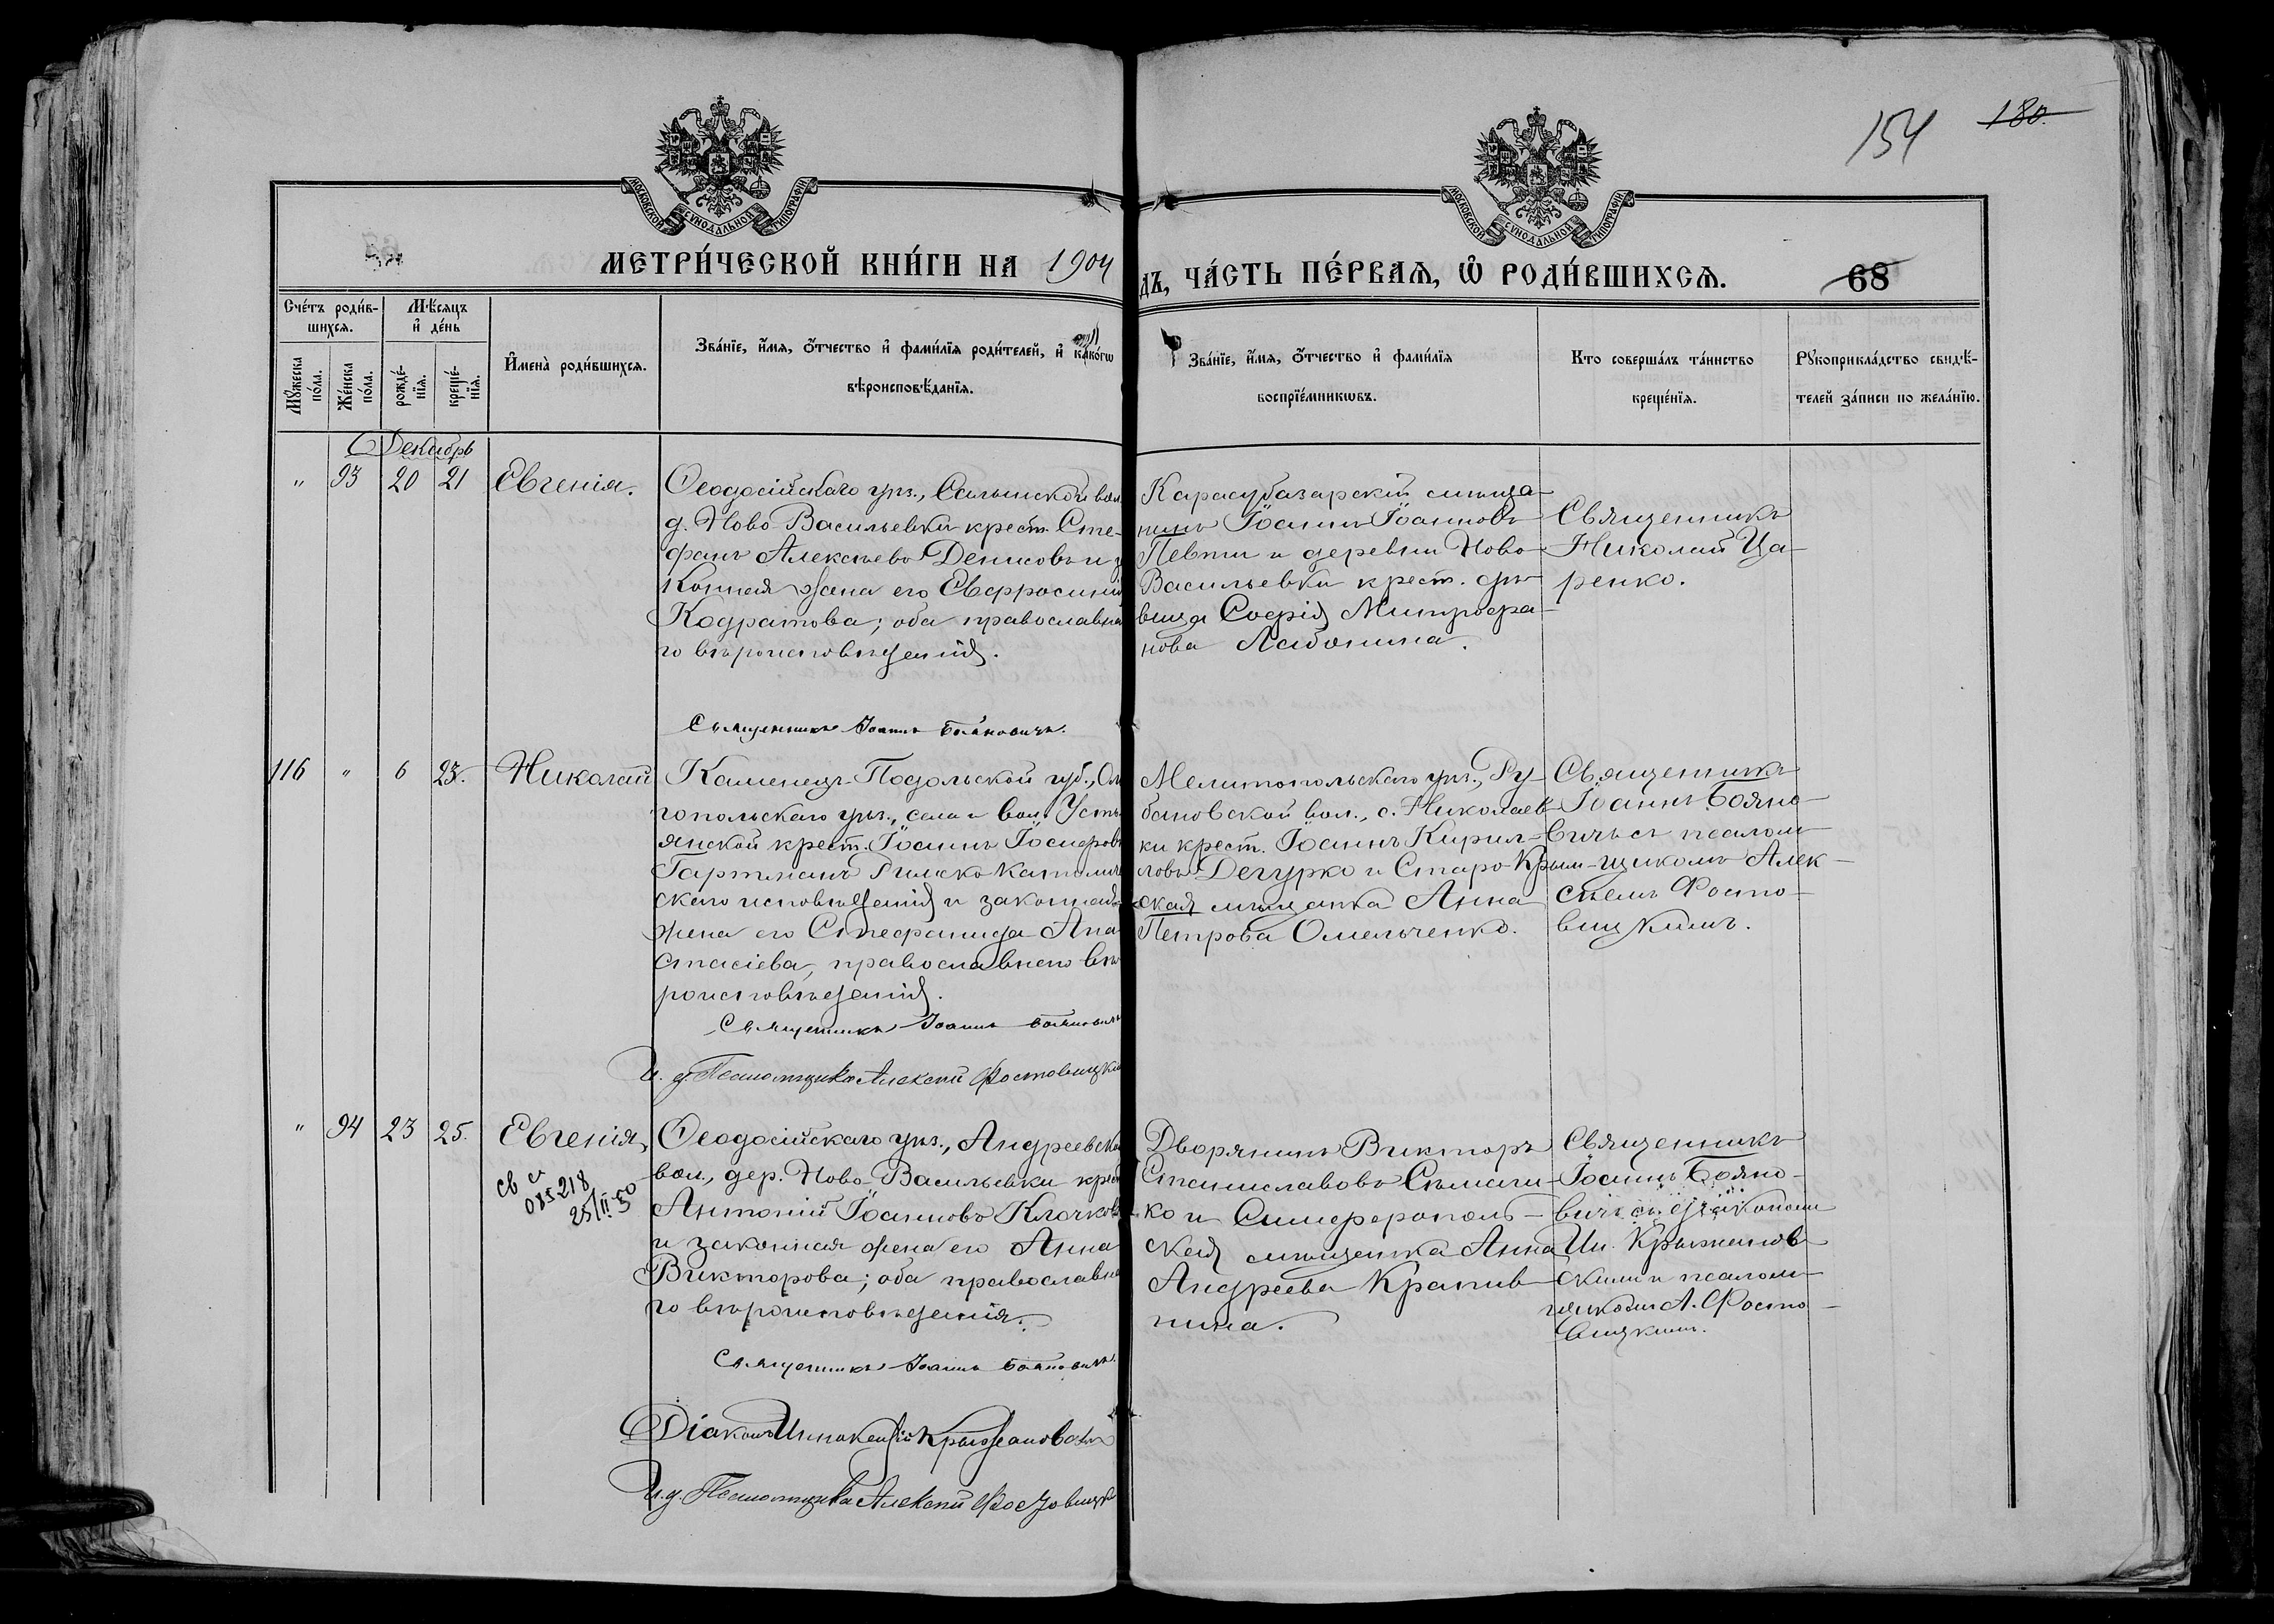 154 180.
МОСКОВСКОЙ СѴНОДАЛЬНОЙ ТИПОГРАФІИ
МОСКОВСКОЙ СѴНОДАЛЬНОЙ ТИПОГРАФІИ
МЕТРИ́ЧЕСКОЙ КНИ́ГИ НА 1904
ДЪ, ЧА́СТЬ ПЕ́РВАѦ, Ѡ҆ РОДИ́ВШИХСѦ. 68
Сче́тъ роди́в-
шихсѧ.
Мꙋ́жеска по́ла.
Же́нска по́ла.
Мѣ́сѧцъ и҆ де́нь
рожде́-нїѧ.
креще́-нїѧ.
И҆мена̀ роди́вшихсѧ.
Зва́нїе, и҆́мѧ, ѻ҆́тчество и҆ фами́лїѧ роди́телей, и҆ како́гѡ
вѣроисповѣ́данїѧ.
Зва́нїе, и҆́мѧ, ѻ҆́тчество и҆ фами́лїѧ
воспрїе́мникѡвъ.
Кто соверша́лъ та́инство
креще́нїѧ.
Рꙋкоприкла́дство свидѣ́-
телей за́писи по жела́нїю.
Декабрь
" 93 20 21 Евгенія.
Ѳеодосійскаго уѣз., Салынской вол.
д. Ново-Васильевки крест. Сте-
фанъ Алексѣевъ Денисовъ и за
конная жена его Евфросинія
Кодратова; оба православна
го вѣроисповѣданія.
Священникъ Іоаннъ Бояновичъ.
Карасубазарскій мѣща-
нинъ Іоаннъ Іоанновъ
Певти и деревни Ново-
Васильевки крест. дѣ-
вица Софія Митрофа-
нова Лабонина.
Священникъ
Николай Ца-
ренко.
116 " 6 23. Николай
Каменецъ-Подольской губ., Оль
гопольскаго уѣз., села и вол. Усть
янской крест. Іоаннъ Іосифовъ
Гартманъ Римско-католиче
скаго исповѣданія и законная
жена его Стефанида Ана
стасіева, православнаго вѣ
роисповѣданія.
Священникъ Іоаннъ Бояновичъ
И. д. Псаломщика Алексѣй Фостовицкій
Мелитопольскаго уѣз., Ру-
бановской вол., с. Николаев-
ки крест. Іоаннъ Кирил-
ловъ Дегурко и Старо-Крым-
ская мѣщанка Анна
Петрова Омельченко.
Священникъ
Іоаннъ Бояно-
вичъ съ псалом-
щикомъ Алек-
сѣемъ Фосто-
вицкимъ.
" 94 23 25. Евгенія
св и
085218
25/II 50
Ѳеодосійскаго уѣз., Андреевской
вол., дер. Ново-Васильевки крест
Антоній Іоанновъ Клочковъ
и законная жена его Анна
Викторова; оба православна
го вѣроисповѣданія.
Священникъ Іоаннъ Бояновичъ.
Діаконъ Иннокентій Крыжановскій
И. д. Псаломщика Алексѣй Фостовицкій
Дворянинъ Викторъ
Станиславовъ Сѣмаги-
ко и Симферополь-
ская мѣщанка Анна
Андреева Крапив-
нина.
Священникъ
Іоаннъ Бояно-
вичъ съ діакономъ
Ин. Крыжанов-
скимъ и псалом-
щикомъ А. Фосто-
вицкимъ.